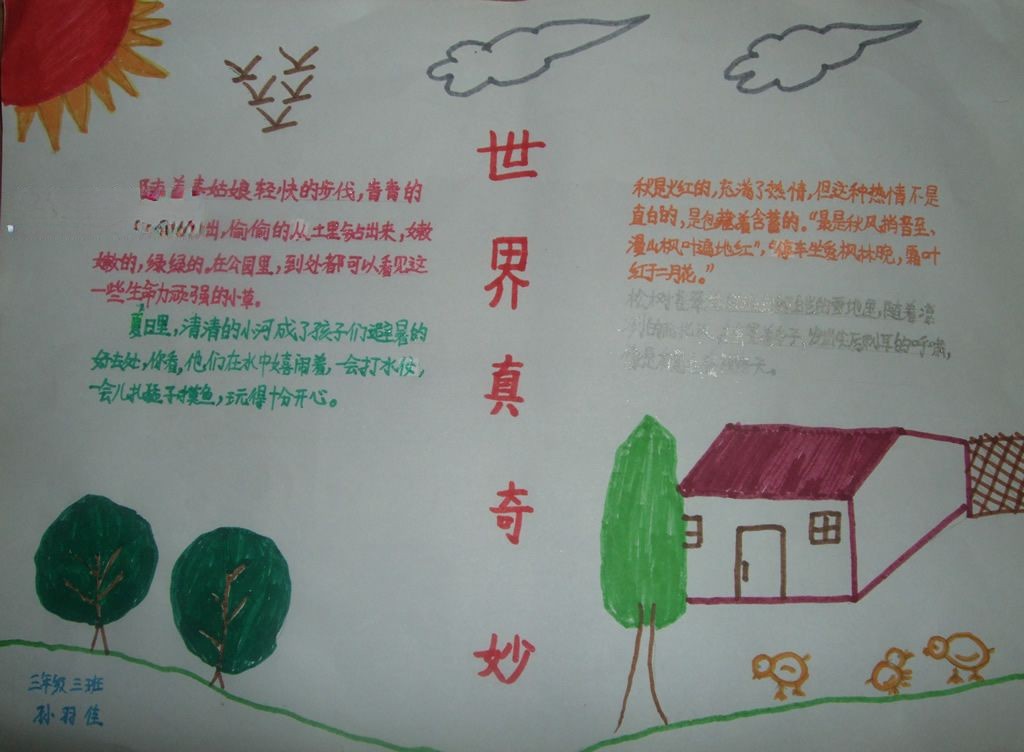 世界真奇妙
随着春姑娘轻快的步伐，青青的
出，偷偷的从土里钻出来，嫩
嫩的，绿绿的。在公园里，到处都可以看见这
一些生命力顽强的小草。
夏日里，清清的小河成了孩子们避暑的
好去处，你看，他们在水中嬉闹着，一会打水仗，
一会儿扎猛子摸鱼，玩得十分开心。
秋是火红的，充满了热情，但这种热情不是
直白的，是包蕴着含蓄的。“最是秋风捎音至，
漫山枫叶遍地红”，“停车坐爱枫林晚，霜叶
红于二月花。”
松树直
的雪地里，随着凛
的呼啸，
天。
三年级三班
孙羽佳